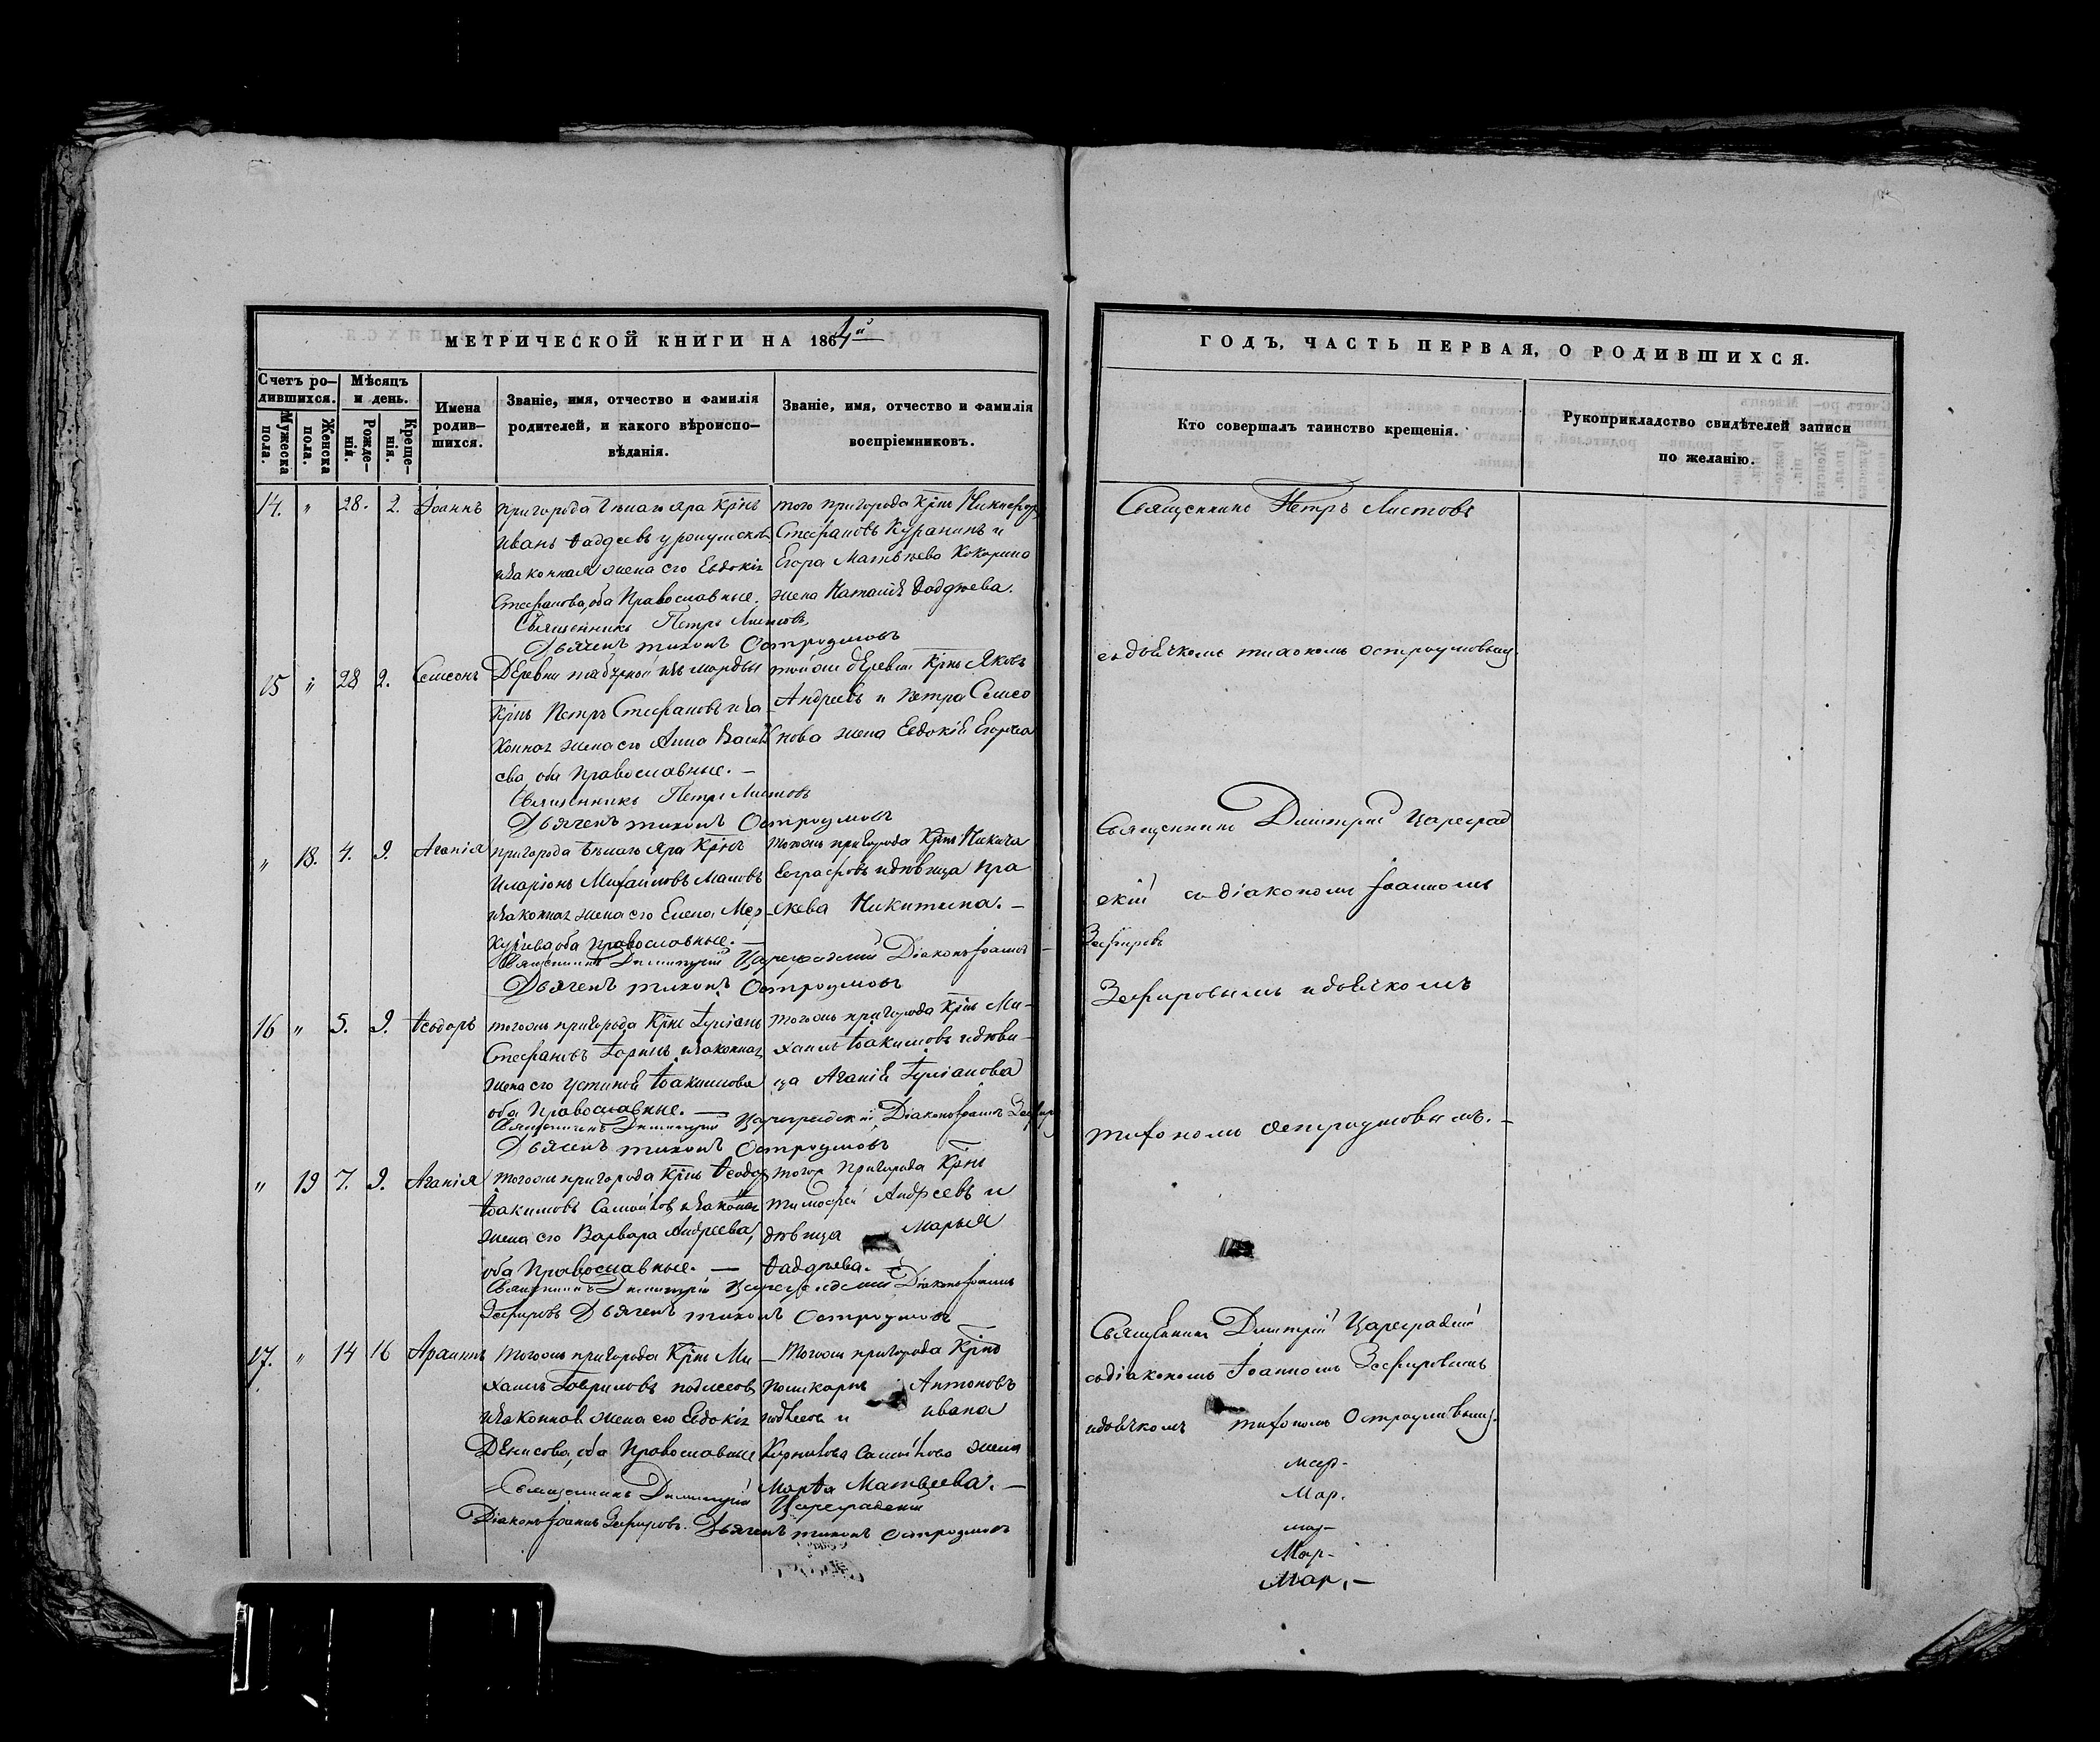 МЕТРИЧЕСКОЙ КНИГИ НА 1864й
Счетъ родившихся.
Мѣсяцъ и день.
Мужеска пола.
Женска пола.
Рожденія.
Крещенія.
Имена родившихся.
Званіе, имя, отчество и фамилія
родителей, и какого вѣроиспо-
вѣданія.
Званіе, имя, отчество и фамилія
воспріемниковъ.
14. " 28. 2. Іоаннъ
пригорода Бѣлаго Яра Крнъ
Иванъ Ѳаддеевъ
изаконная жена его Евдокія
Стефанова, оба Православные.
Священникъ Петръ Листовъ,
Дьячекъ тихонъ Остроумовъ
того пригорода Крнъ Никифор
Стефановъ Куранинъ и
Егора Матвѣева Кокорина
жена Наталія Ѳаддѣева.
15 " 28 2. Семсонъ
Деревни изъ мордвы
Крнъ Петръ Стефановъ иза
конная жена его Анна Васил
ева оба Православные. —
Священникъ Петръ Листовъ
Дьячекъ тихонъ Остроумовъ
тойже деревни Крнъ Яковъ
Андреевъ и Петра Семсо
нова жена Евдокія Егорова
" 18. 4. 9. Агапія
пригорода Бѣлаго Яра Крнъ
Иларіонъ Михайловъ Маловъ
изаконная жена его Елена Мер
курьева оба Православные. —
Священникъ Димитрій Цареградскій Діаконъ Іоаннъ
Дьячекъ тихонъ Остроумовъ
Тогожъ пригорода Крнъ Никита
Евграфовъ идѣвица Пра
скева Никитина. —
16 " 5. 9. Ѳеодоръ
тогожъ пригорода Крнъ
Стефановъ изаконная
жена его Устинія Іоакимова
оба Православные. —
Священникъ Димитрій Цареградскій, Діаконъ Іоаннъ Зефир
Дьячекъ тихонъ Остроумовъ
Тогожъ пригорода Крнъ Ми-
хаилъ Іоакимовъ идѣви-
ца Агапія
" 19 7. 9. Агапія
тогожъ пригорода Крнъ Ѳеодор
Іоакимовъ изаконная
жена его Варвара Андреева,
оба Православные. —
Священникъ Димитрій Цареградскій Діаконъ Іоаннъ
Зефировъ Дьячекъ тихонъ Остроумовъ
Пригорода Крнъ
тимофей Андреевъ и
дѣвица Марья
Ѳаддѣева.
17. " 14 16
тогожъ пригорода Крнъ Ми
хаилъ Гавриловъ
изаконная жена его Евдокія
Денисова, оба Православные
Священникъ Димитрій Цареградскій
Діаконъ Іоаннъ Зефировъ. Дьячекъ тихонъ Остроумовъ
Тогожъ пригорода Крнъ
Поликарпъ Антоновъ
и Ивана
жена
Марѳа Матвѣева. —
ГОДЪ, ЧАСТЬ ПЕРВАЯ, О РОДИВШИХСЯ.
Кто совершалъ таинство крещенія.
Рукоприкладство свидѣтелей записи
по желанію.
Священникъ Петръ Листовъ
сдьячкомъ тихономъ Остроумовымъ
Священникъ Димитрій Цареград
скій содіакономъ Іоанномъ
Зефировъ
Зефировымъ идьячкомъ
тихономъ Остроумовымъ. —
Священникъ Димитрій Цареградскій
содіакономъ Іоанномъ Зефировымъ
идьячкомъ тихономъ Остроумовымъ.
мар-
Мар.
мар-
Мар-
Мар. —